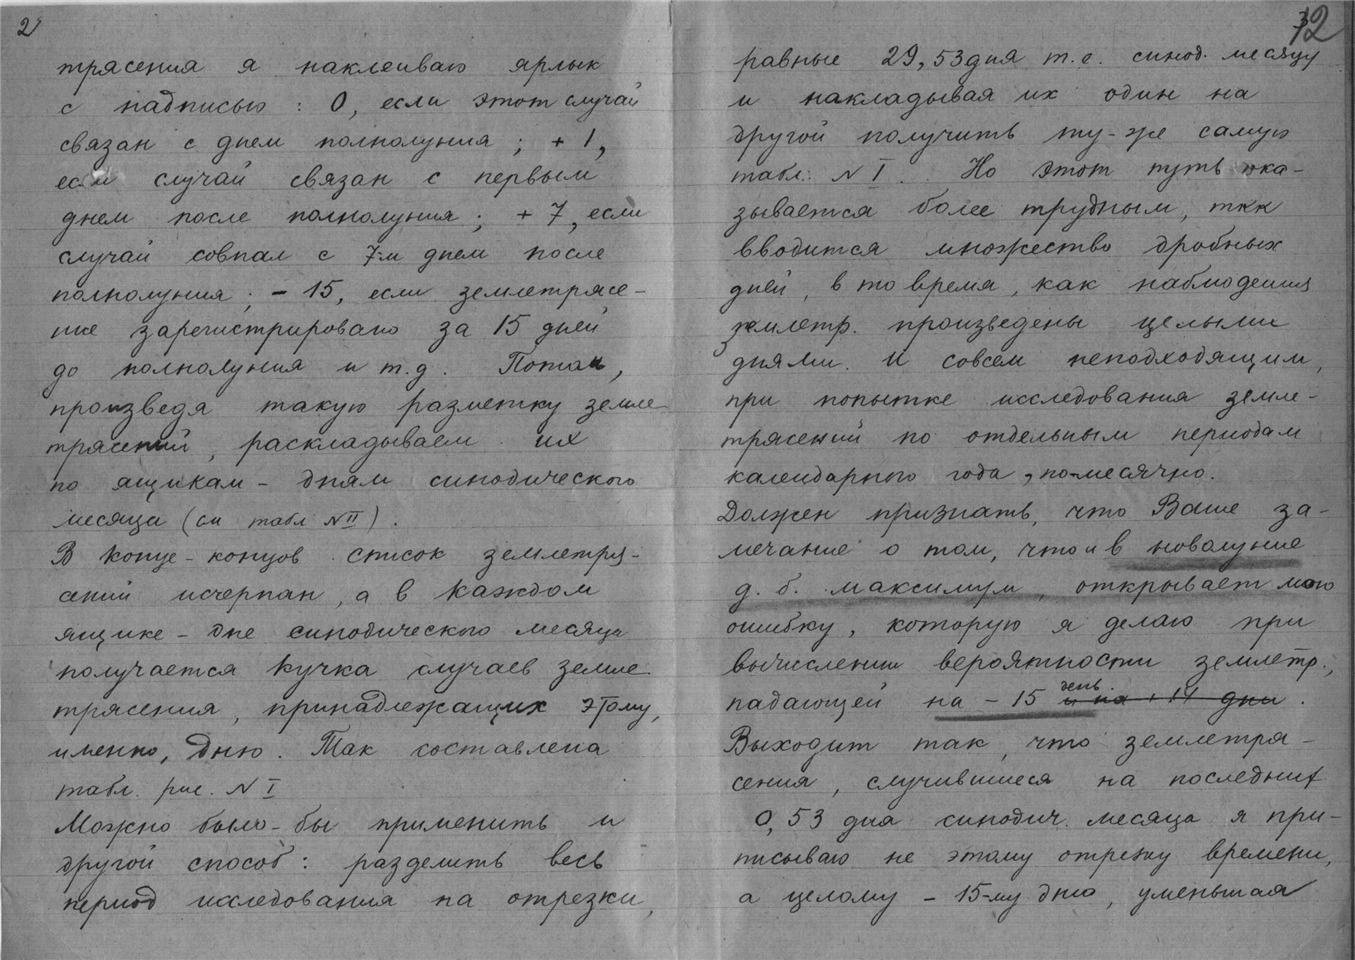 2
трясения я наклеиваю ярлык
с надписью: 0, если этот случай
связан с днем полнолуния; +1,
если случай связан с первым
днем после полнолуния; +7, если
случай совпал с 7-м днем после
полнолуния; -15, если землетрясе-
ние зарегистрировано за 15 дней
до полнолуния и т.д. Потом,
произведя такую разметку земле-
трясений, раскладываем их
по ящикам - дням синодического
месяца (см табл №II).
В конце-концов список землетря-
сений исчерпан, а в каждом
ящике - дне синодического месяца
получается кучка случаев земле-
трясения, принадлежащих этому,
именно, дню. Так составлена
табл. рис. №I
Можно было-бы применить и
другой способ: разделить весь
период исследования на отрезки,
12
равные 29,53 дня т.е. синод. месяцу
и накладывая их один на
другой получить ту-же самую
табл. №I. Но этот путь ока-
зывается более трудным, ткк
вводится множество дробных
дней, в то время, как наблюдения
землетр. произведены целыми
днями. И совсем неподходящим,
при попытке исследования земле-
трясений по отдельным периодам
календарного года, по-месячно.
Должен признать, что Ваше за-
мечание о том, что и в новолуние
д.б. максимум, открывает мою
ошибку, которую я делаю при
вычислении вероятности землетр.,
падающей на -15 день и на +14 дни.
Выходит так, что землетря-
сения, случившиеся на последних
0,53 дня синодич. месяца я при-
писываю не этому отрезку времени,
а целому -15-му дню, уменьшая